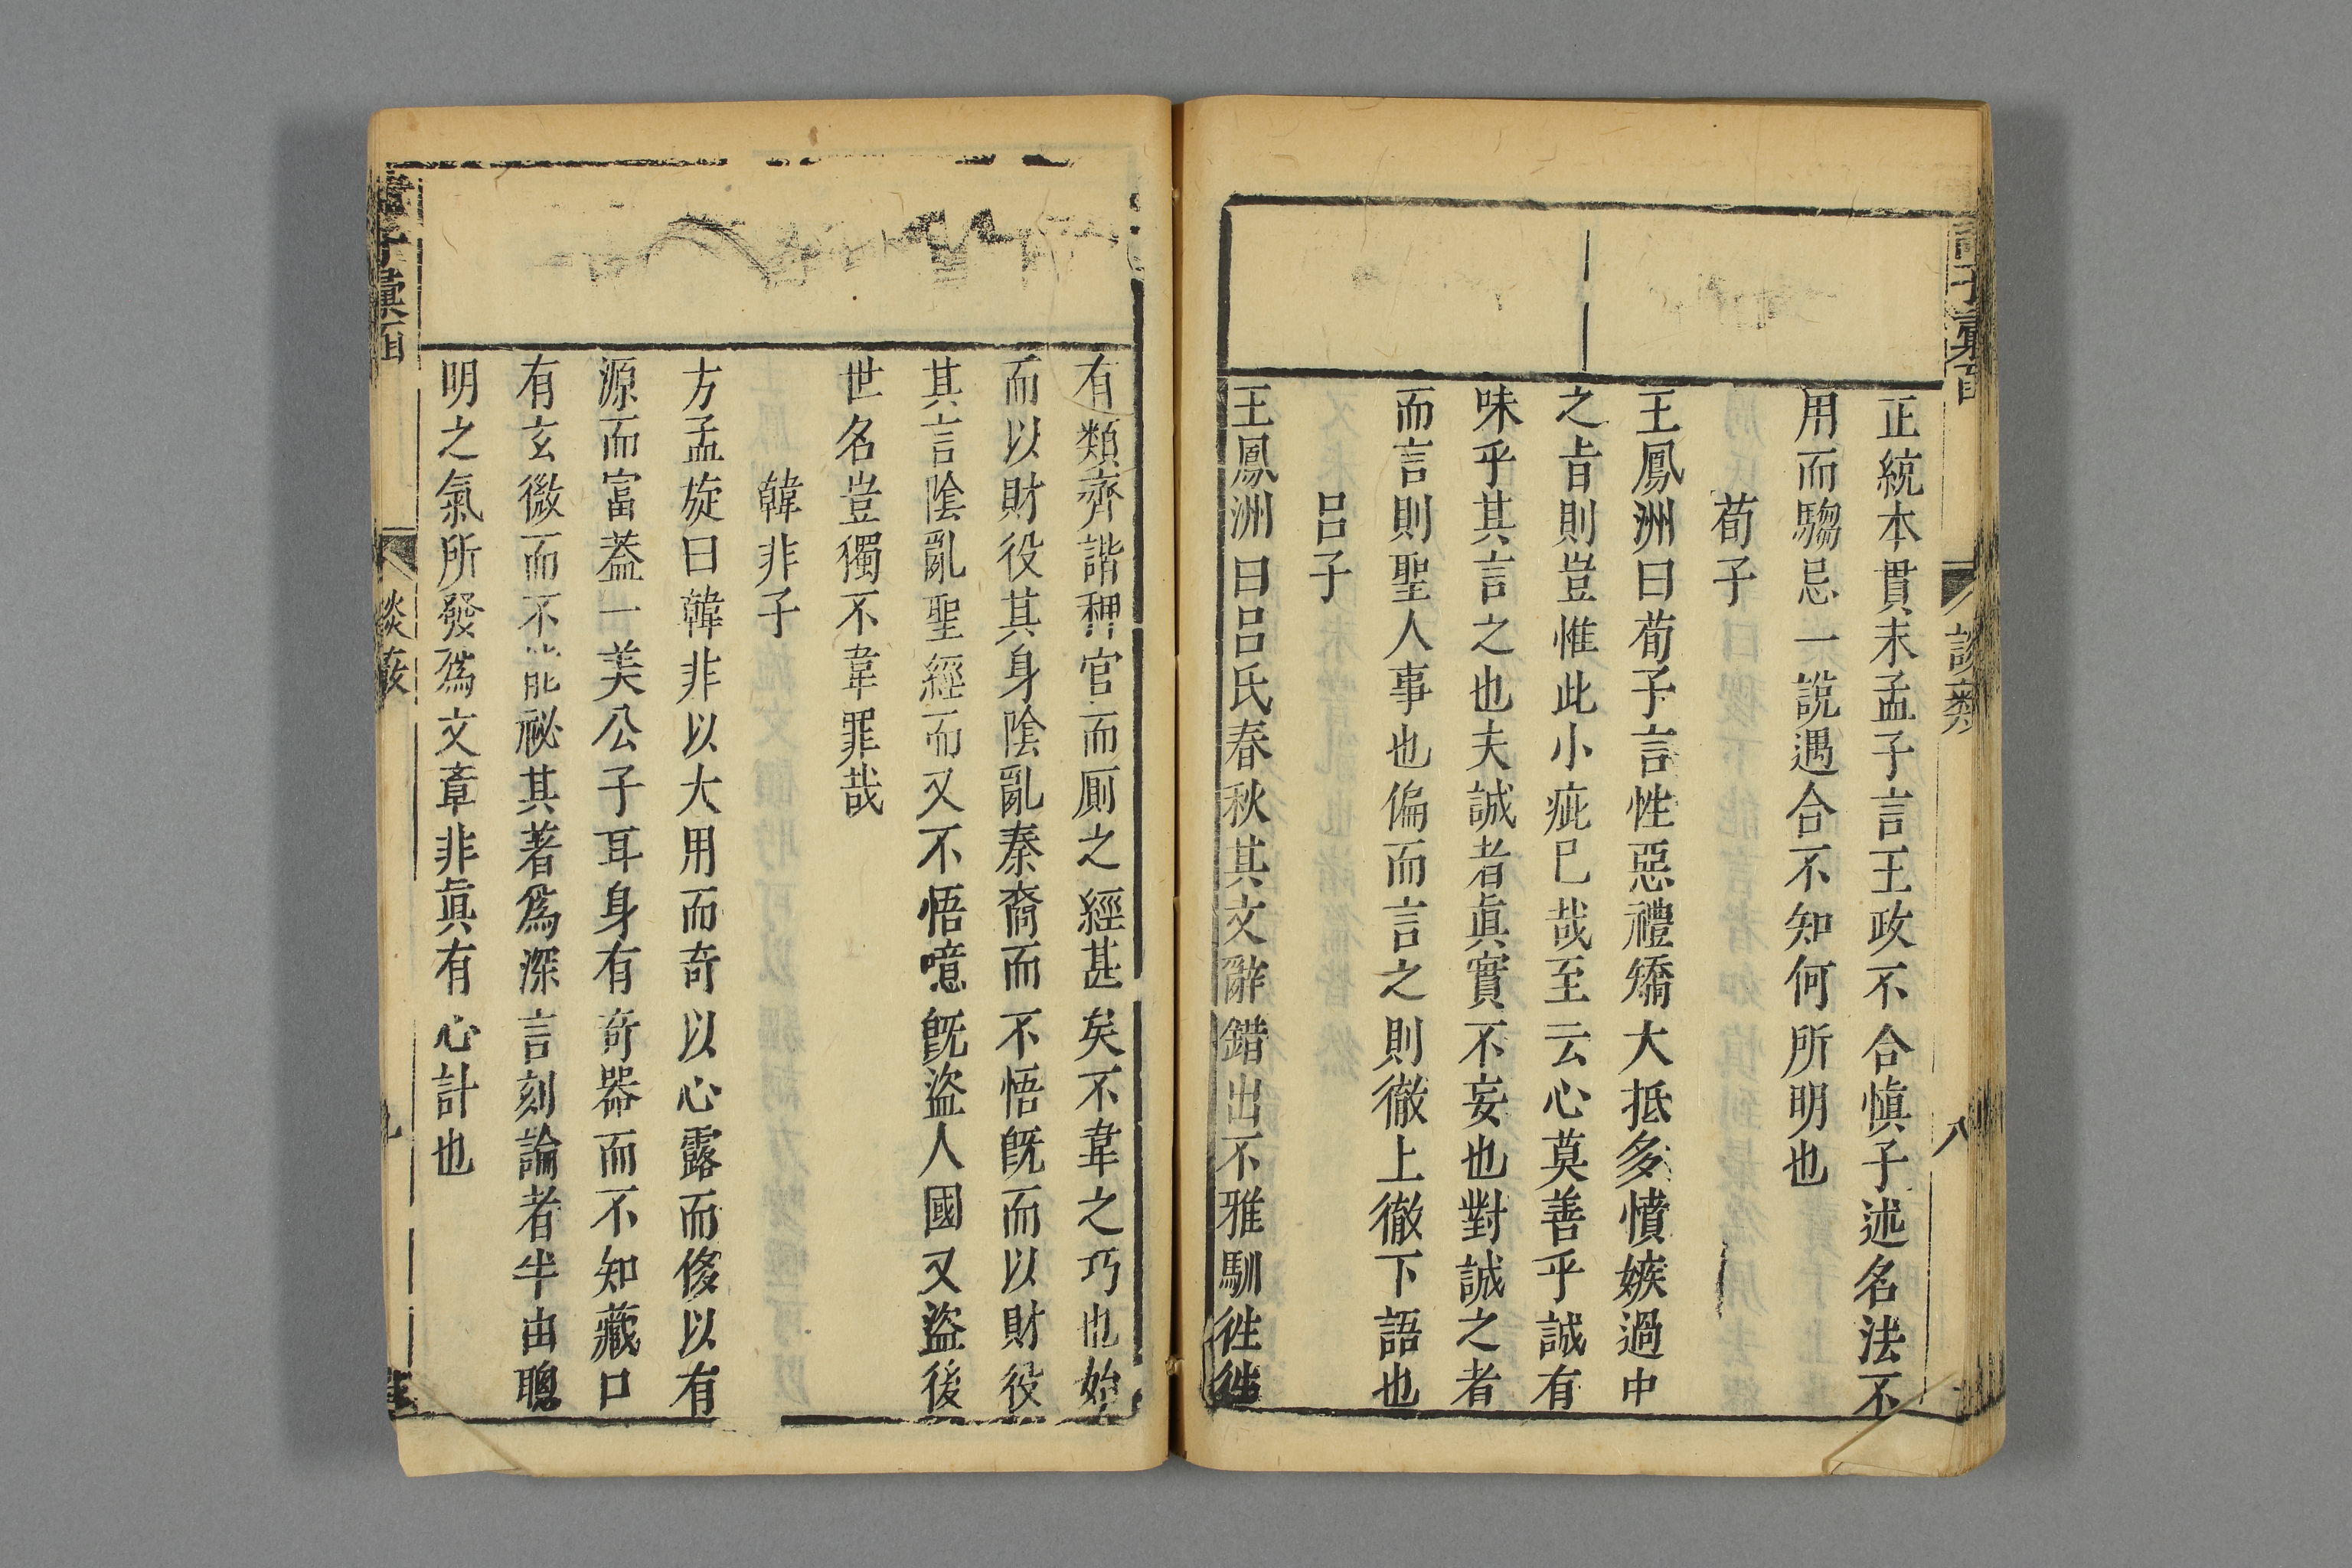 正統本貫末孟子言王政不合愼子述名法不
用而騶忌一說遇合不知何所明也
荀子
王鳳洲曰荀子言性惡禮矯大抵多憤嫉過中
之㫖則豈惟此小疵已哉至云心莫善乎誠有
味乎其言之也夫誠者眞實不妄也對誠之者
而言則聖人事也偏而言之則徹上徹下語也
呂子
王鳳洲曰呂氏春秋其文辭錯出不雅馴徃徃
有類齊諧稗官而厠之經甚矣不韋之巧也始
而以財役其身陰亂秦裔而不悟旣而以財役
其言陰亂聖經而又不悟噫旣盜人國又盜後
世名豈獨不韋罪哉
韓非子
方孟旋曰韓非以大用而奇以心露而俊以有
源而富葢一美公子耳身有奇器而不知藏口
有玄微而不能祕其著爲深言刻論者半由聰
明之氣所發爲文章非眞有心計也